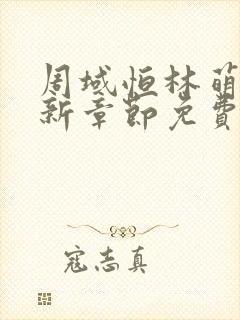 周域恒林萌
新章节免费
寇志真